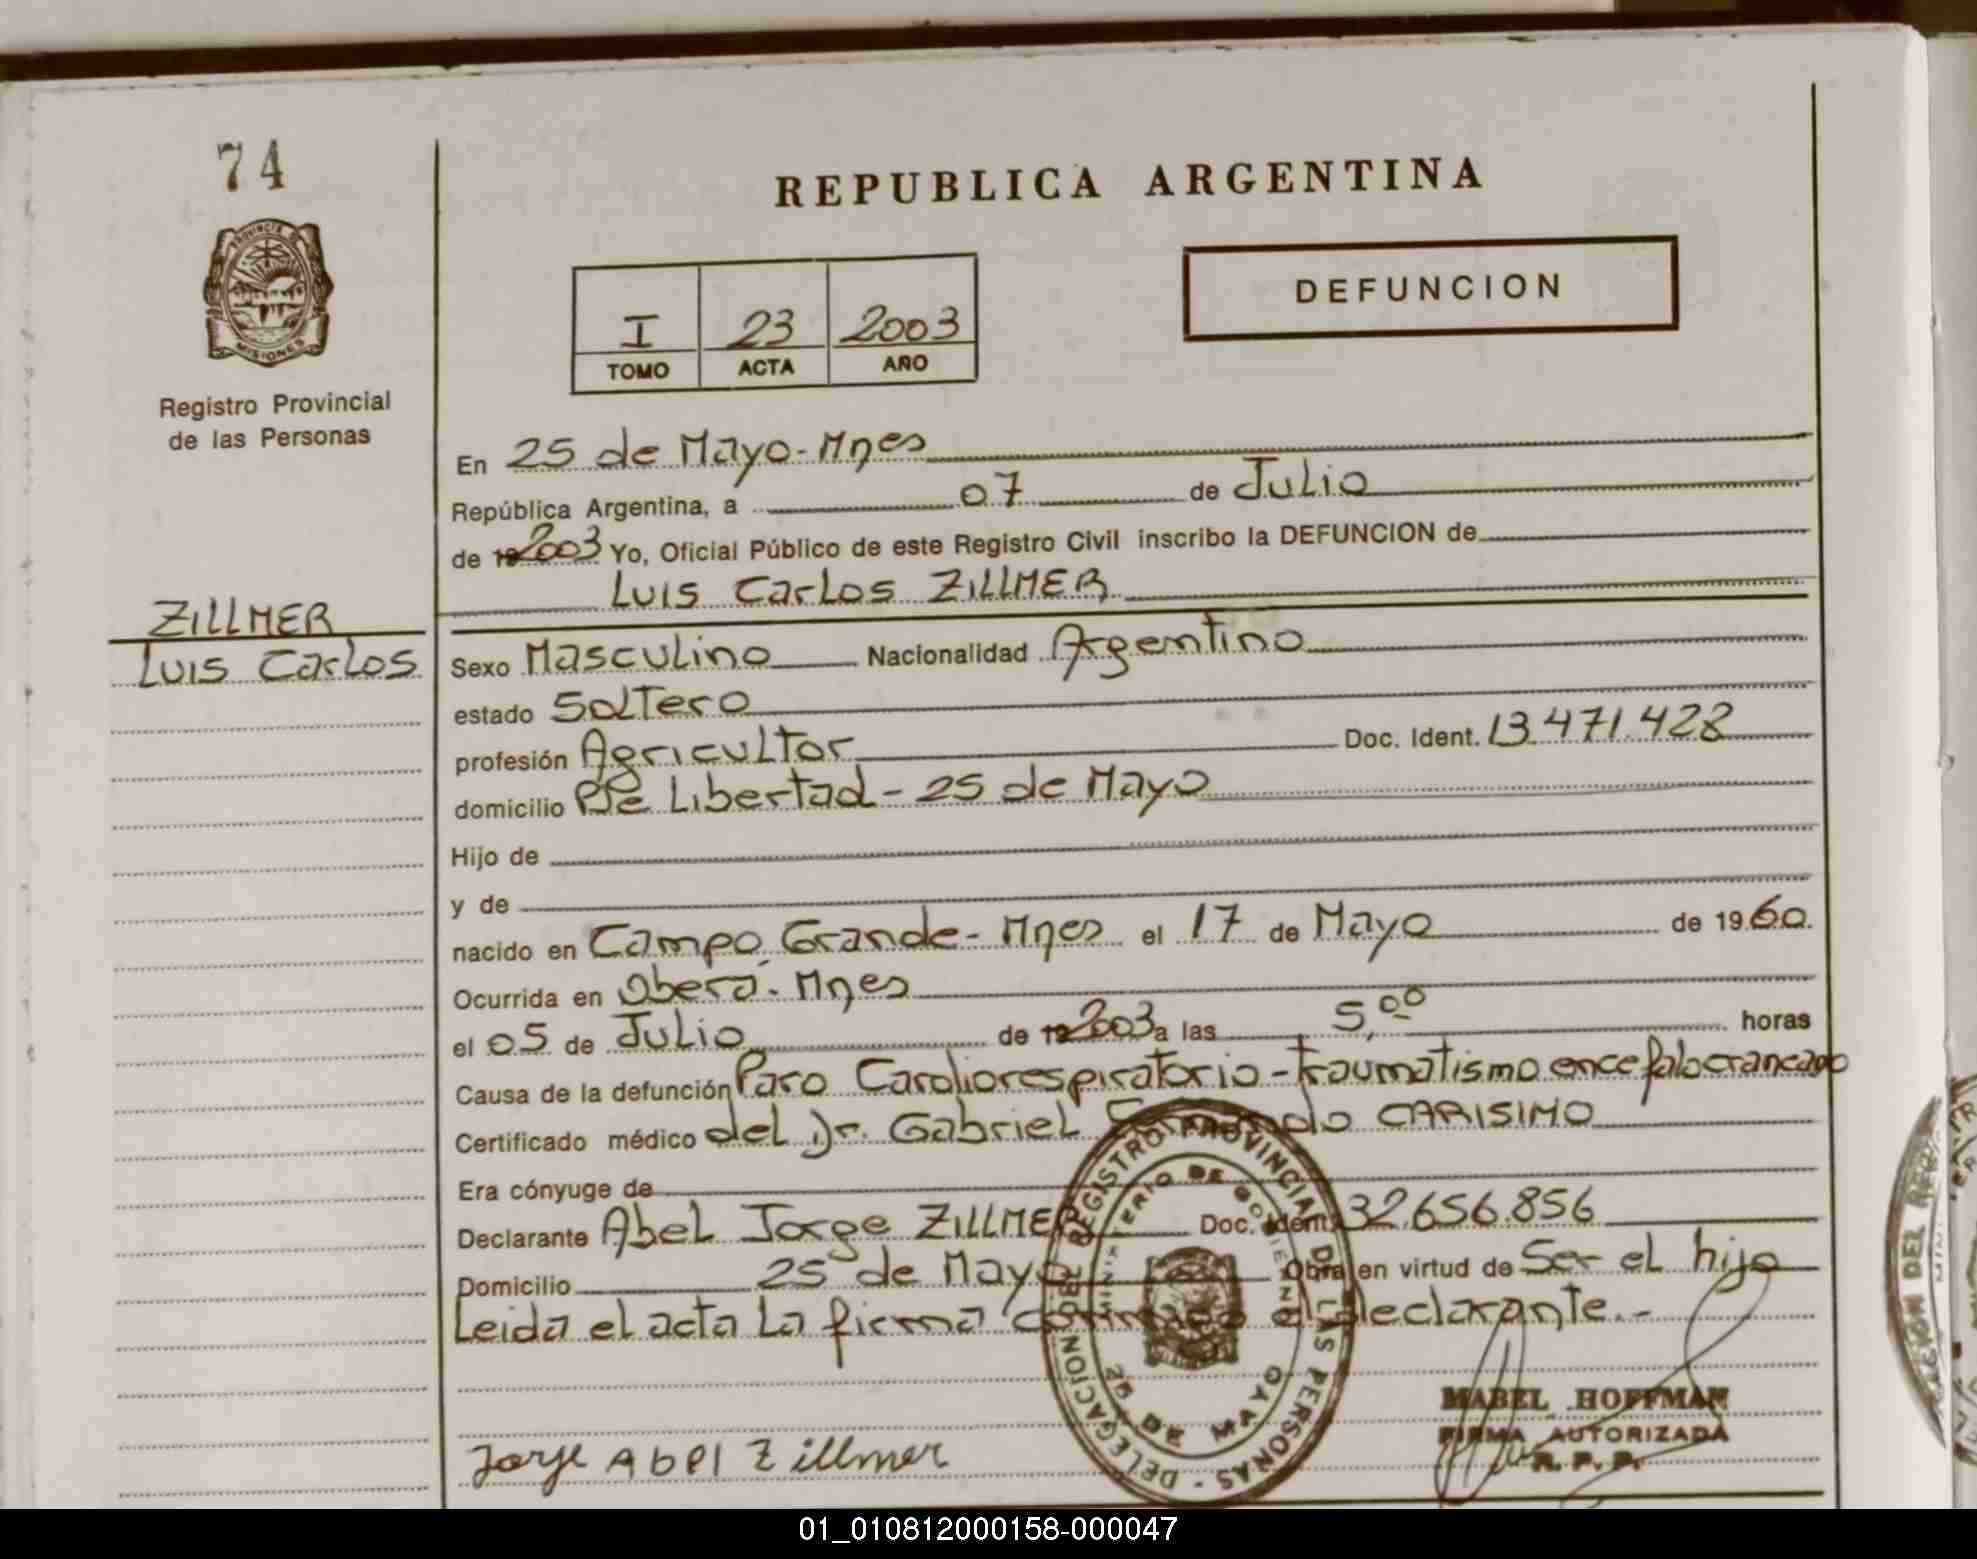 74
PROVINCIA DE
MISIONES
Registro Provincial
de las Personas
ZILLMER
Luis Carlos
REPUBLICA ARGENTINA
I 23 2003
TOMO ACTA AÑO
DEFUNCION
En 25 de Mayo - Mnes
República Argentina, a 07 de Julio
de 19 2003 Yo, Oficial Público de este Registro Civil inscribo la DEFUNCION de
Luis Carlos ZILLMER
Sexo Masculino Nacionalidad Argentino
estado Soltero
profesión Agricultor Doc. Ident. 13.471.428
domicilio Pje Libertad - 25 de Mayo
Hijo de
y de
nacido en Campo Grande - Mnes el 17 de Mayo de 1960.
Ocurrida en Oberá - Mnes
el 05 de Julio de 19 2003 a las 5,00 horas
Causa de la defunción Paro Cardiorespiratorio - traumatismo encefalocraneano
Certificado médico del Dr. Gabriel CARISIMO
Era cónyuge de
Declarante Abel Jorge ZILLMER Doc. Ident. 32.656.856
Domicilio 25 de Mayo Obra en virtud de Ser el hijo
Leida el acta La firma conmigo el declarante.-
Jorge Abel Zillmer
DELEGACION DEL REGISTRO PROVINCIAL DE LAS PERSONAS -
MINISTERIO DE GOBIERNO
25 DE MAYO
MABEL HOFFMAN
FIRMA AUTORIZADA
R. P. P.
01_010812000158-000047